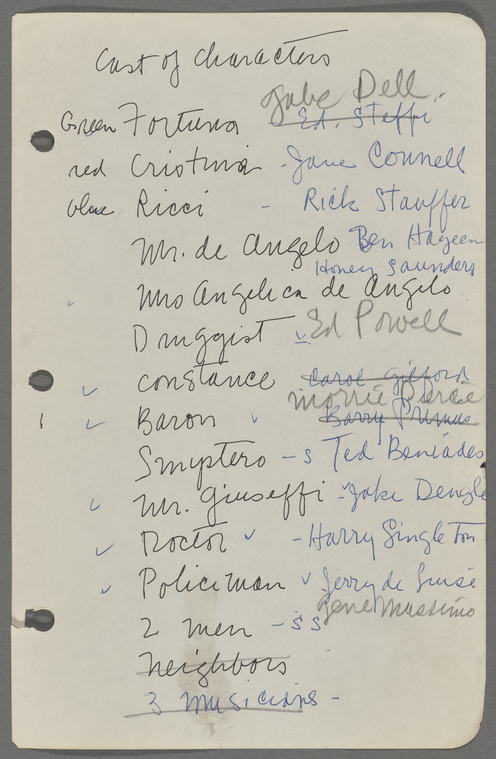 Cast of Characters
Gabe Dell.
Green Fortuna Ed. Steffi
red Cristina - Jane Connell
blue Ricci - Rick Stauffer
Mr. de Angelo Ben Hageen
Honey Saunders
Mrs Angelica de Angelo
Druggist Ed Powell
constance Carol Gilford
morrie Pierce
Baron Barry Primus
Smyptero - s Ted Beniades
Mr. Giuseffi - Jake Dengle
Doctor - Harry Singleton
Policiman Jerry de Luise
Gene Massimo
2 men - s s
neighbors
3 musicians -